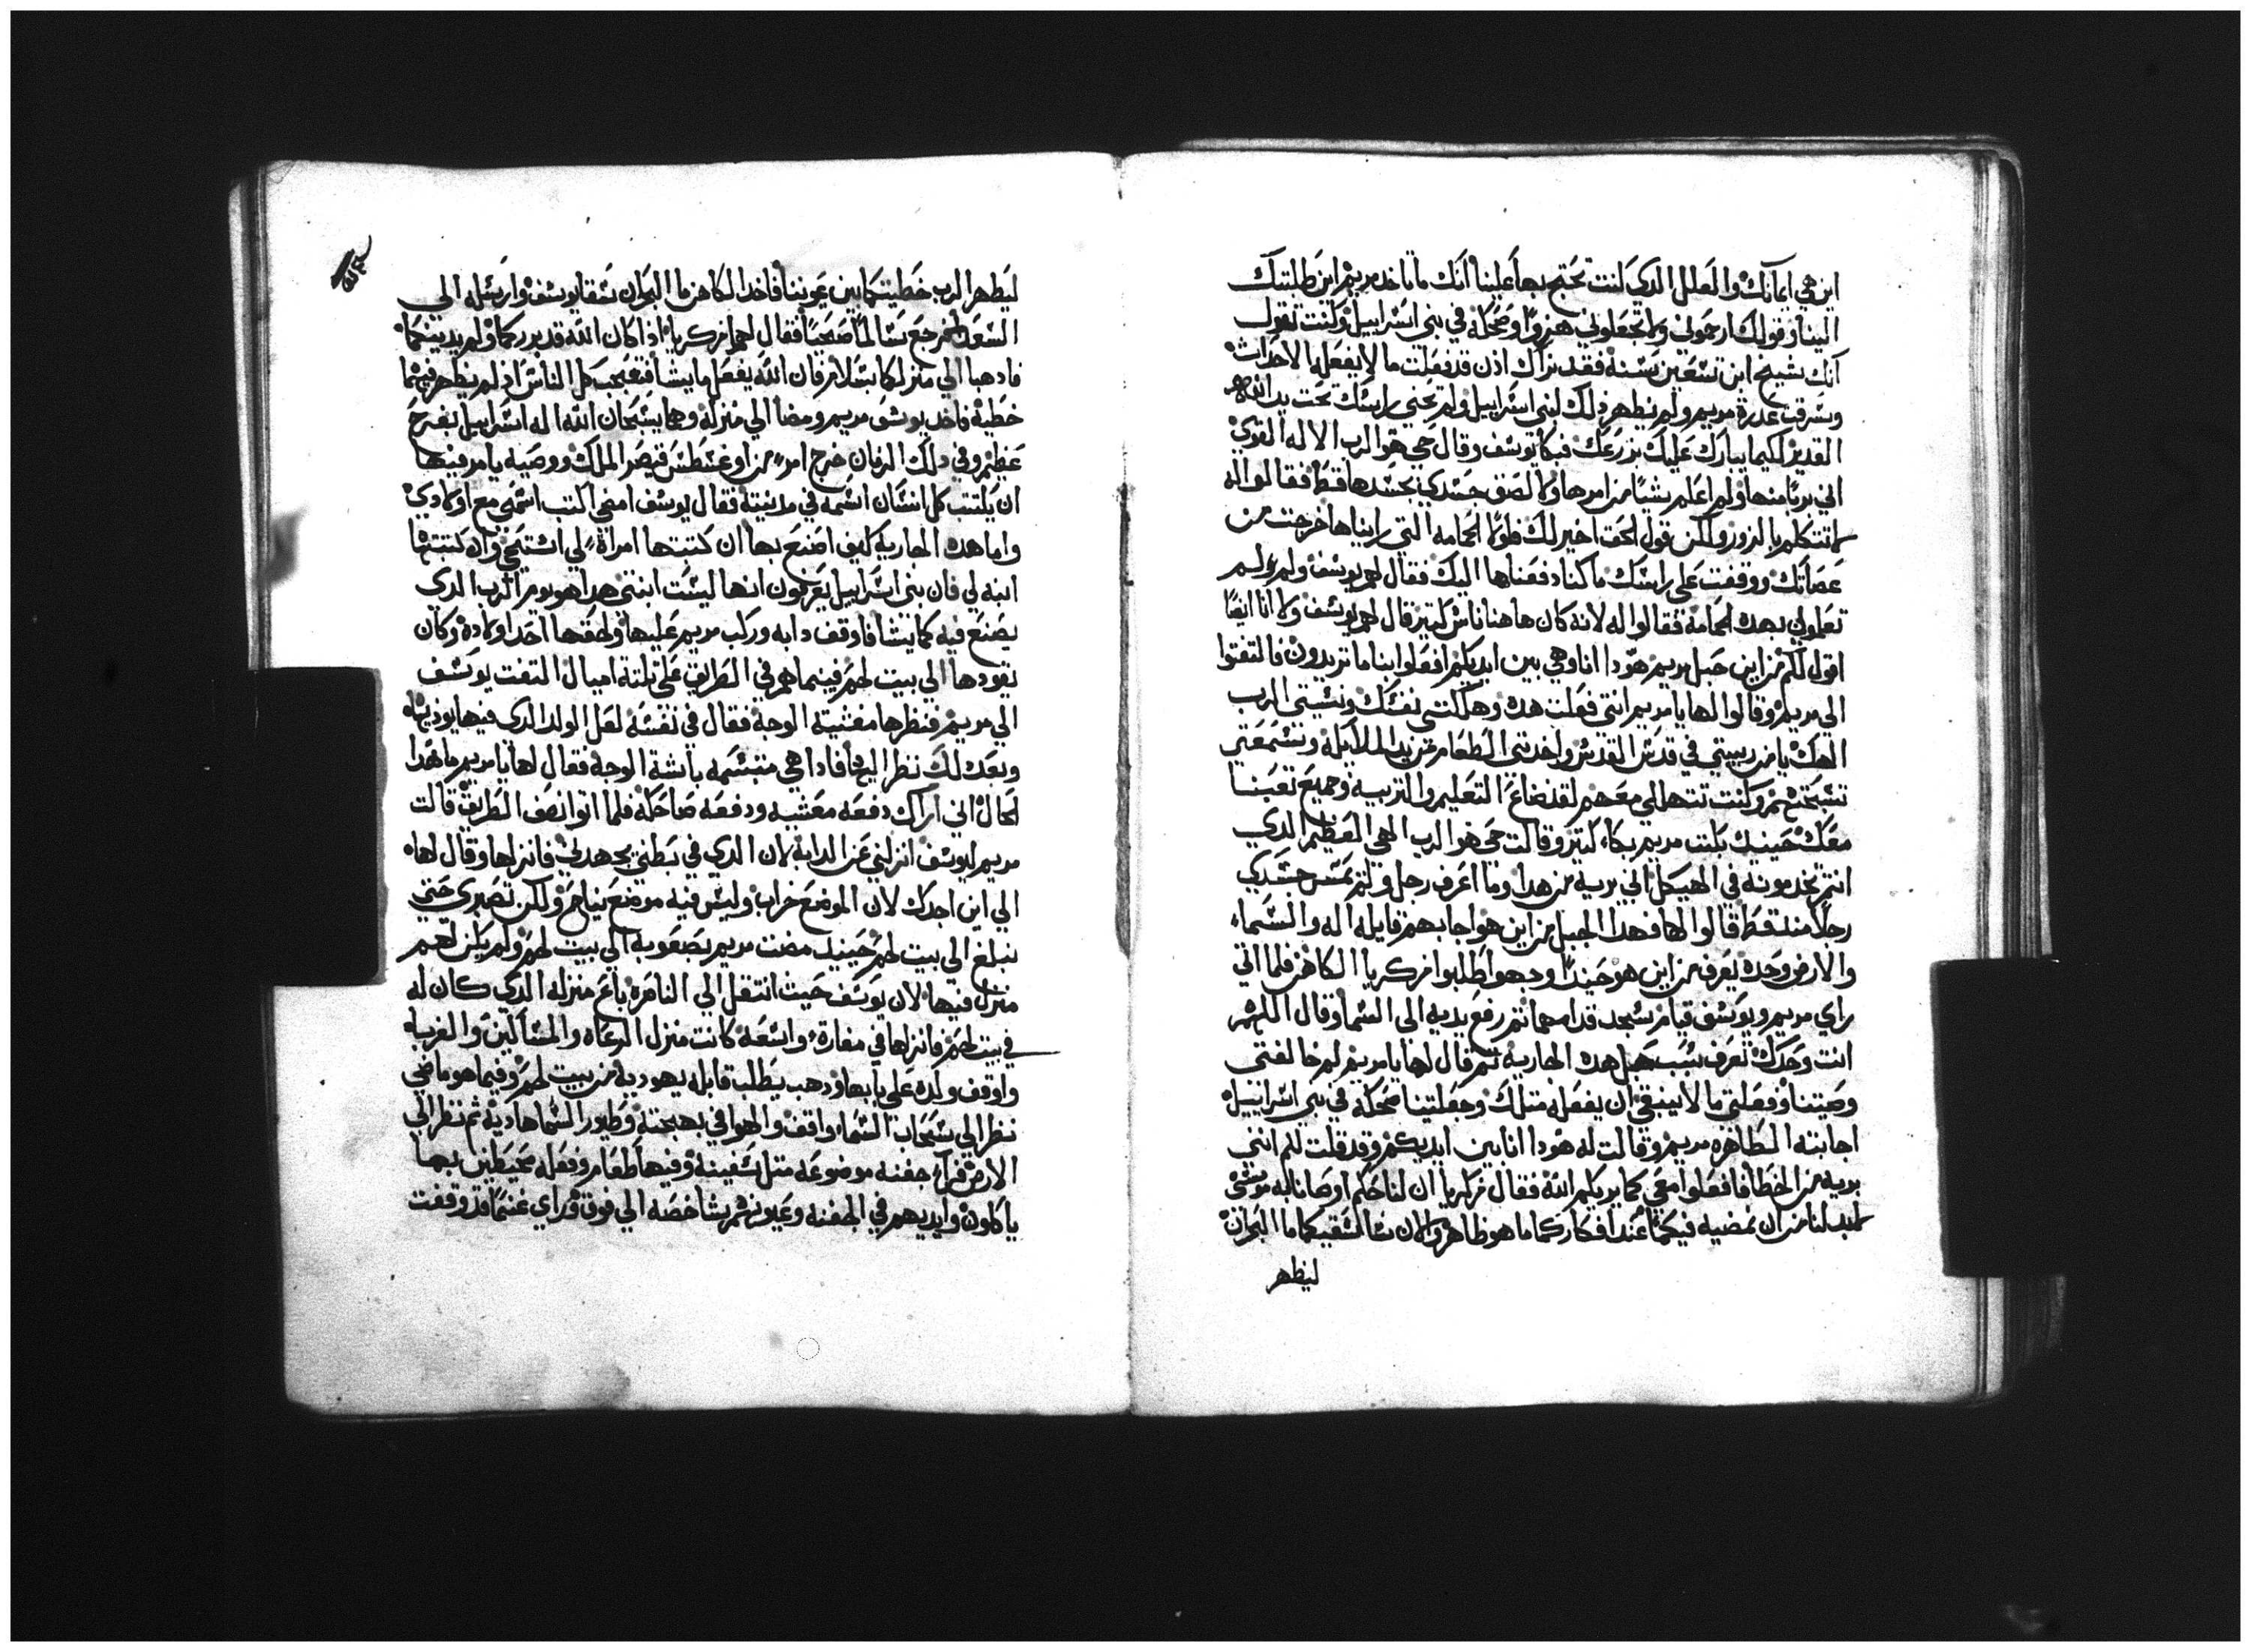 اين هي ايمانك والعلل الدي كنت تحتج بها علينا انك ما تاخد مريم اين طلبتك
الينا وقولك ارحموني ولا تجعلوني هزوا وضحكة في بني اسراييل وكنت تقول
انك شيخ ابن تسعين سنة فقد نراك ادن قد فعلت ما لا يفعله الاحداث
وسرقت عدرة مريم ولم تظهر دلك لبني اسراييل ولم تحني راسك تحت يد الله
القدير لكيما يبارك عليك بزرعك فبكا يوسف وقال حي هو الرب الاله القوي
اني بريا منها ولم اعلم شيا من امرها ولا لصق جسدي بجسدها قط فقالوا له
لا تتكلم بالزور ولكن قول الحق اخير لك فلولا الحمامه التي رايناها خرجت من
عصاتك ووقفت علي راسك ما كنا دفعناها اليك فقال لهم يوسف ولم
تعلموني بهده الحمامة فقالوا له لانه كان هاهنا ناس كتير قال لهم يوسف ولا انا ايضا
اقول لكم من اين حبل مريم هودا انا وهي بين ايديكم افعلوا بنا ما تريدون فالتفتوا
الي مريم وقالوا لها يا مريم انتي فعلت هده وهلكتي نفسك ونسيتي الرب
الهك يا من ربيتي في قدس القدس واخدتي الطعام من يد الملايكة وتسمعي
تسبحتهم وكنت تتهللي معهم لقد ضاع التعليم والتربية وجميع تعبنا
معك حينيد بكت مريم بكاء كتير وقالت حي هو الرب الهي العظيم الدي
انتم تخدمونه في الهيكل اني برية من هدا وما اعرف رجل ولم يمس جسدي
رجلا مند قط قالوا لها فهدا الحبل من اين هو اجابهم قايله اله السماء
والارض وحده يعرف من اين هو حيندا وجهوا طلبوا زكريا الكاهن فلما اتي
راي مريم ويوسف قيام سجد قدامهما تم رفع يديه الي السما وقال اللهم
انت وحدك تعرف سبب حبل هده الجارية تم قال لها يا مريم لم خالفتي
وصيتنا وفعلتي ما لا ينبغي ان يفعله متلك وجعلتينا ضحكة في بني اسراييل
اجابته الطاهره مريم وقالت له هودا انا بين ايديكم وقد قلت لكم انني
برية من الخطا فافعلوا معي كما يريكم الله فقال زكريا ان لنا حكم اوصانا به موسي
لابد لنا من ان نمضيه فيكما عند افكاركما ما هو ظاهر والان سا اسقيكما ما البحران
ليظهر
ليظهر الرب خطيتكما بين عيوننا فاخد الكاهن ما البحران سقا يوسف وارسله الي
السعدا تم رجع سالما صحيحا فقال لهما زكريا ادا كان الله قد برركما ولم يدينكما
فادهبا الي منزلكما بسلام فان الله يفعل ما يشا فتعجب كل الناس اد لم يظهر فيهما
خطية فاخد يوسف مريم ومضا الي منزله وهما يسبحان الله اله اسراييل بفرح
عظيم وفي دلك الزمان خرج امر من اوغسطس قيصر الملك ووصيه يامر فيها
ان يكتتب كل انسان اسمه في مدينته فقال يوسف امضي اكتب اسمي مع اولادي
واما هده الجاريه كيف اصنع بها ان كتبتها امراة لي استحي وان كتبتها
ابنه لي فان بني اسراييل يعرفون انها ليست ابنتي هدا هو يوم الرب الدي
يصنع فيه كما يشا فاوقف دابه وركب مريم عليها ولحقها احد اولاده وكان
يقودها الي بيت لحم فبينما هم في الطريق علي تلتة اميال التفت يوسف
الي مريم فنظرها مغتبية الوجه فقال في نفسه لعل الولد الدي فيها يوديها
وبعد دلك نظر اليها فادا هي متبسمه باشة الوجه فقال لها يا مريم ما هدا
الحال اني اراك دفعه معتبيه ودفعه ضاحكة فلما اتوا نصف الطريق قالت
مريم ليوسف انزلني عن الدابة لان الدي في بطني يجهدني فانزلها وقال لها
الي اين اجدك لان الموضع خراب وليس فيه موضع نياح ولكن تصبري حتي
نبلغ الي بيت لحم حينيد مضت مريم بصعوبة الي بيت لحم ولم يكن لهم
منزل فيها لان يوسف حيت انتقل الي الناصرة باع منزله الدي كان له
في بيت لحم فانزلها في مغارة واسعة كانت منزل الرعاه والمساكين والغربا
واوقف ولده علي بابها ودهب يطلب قابله يهودية من بيت لحم وفيما هو ماضي
نظر الي سحاب السماء واقف والهوا في بهجته وطيور السما هادية ثم نظر الي
الارض فراء جفنه موضوعه متل سفينة وفيها طعام وفعله محيطين بها
ياكلون وايديهم في الجفنه وعيونهم شاخصه الي فوق وراي غنما قد وقفت